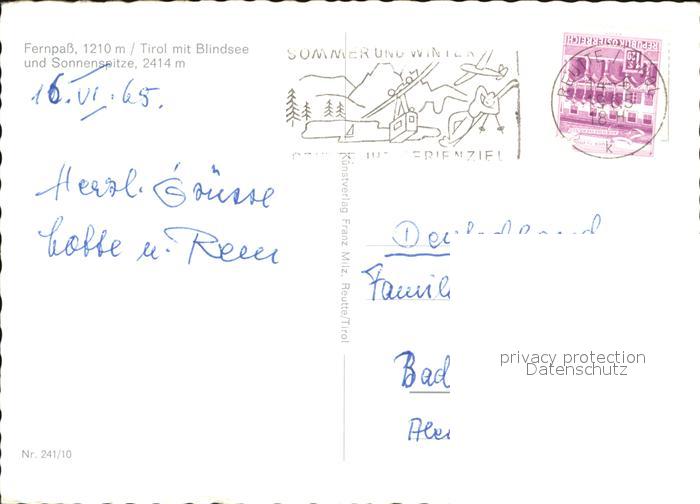 Fernpaß, 1210 m / Tirol mit Blindsee
und Sonnenspitze, 2414 m
16. VI. 65.
Herzl. Grüsse
Lotte u.
SOMMER UND WINTER
FERIENZIEL
REPUBLIK ÖSTERREICH
REUTTE
18
k
Künstverlag Franz Milz, Reutte/Tirol
Deutschland
Famil
Bad
privacy protection
Datenschutz
Nr. 241/10